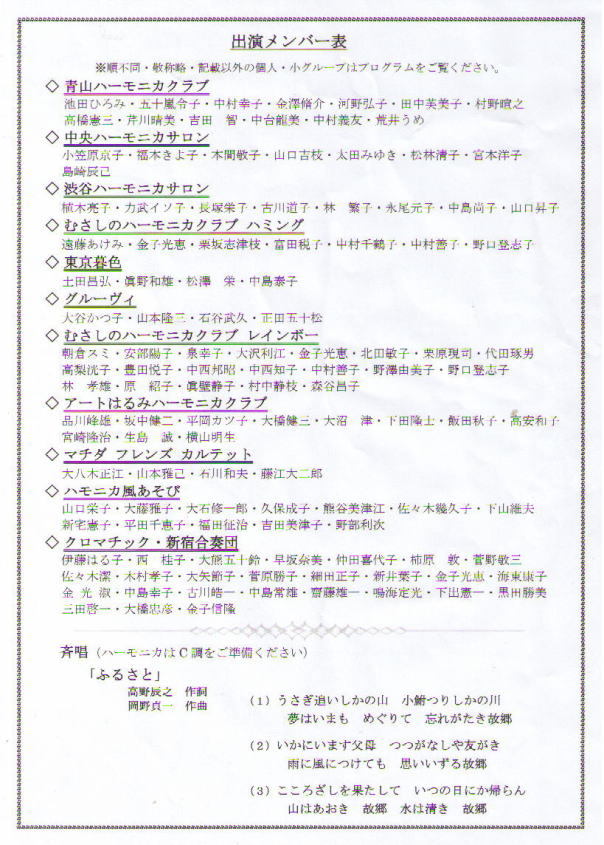 出演メンバー表
※順不同・敬称略・記載以外の個人・小グループはプログラムをご覧ください。
◇ 青山ハーモニカクラブ
池田ひろみ・五十嵐令子・中村幸子・金澤脩介・河野弘子・田中芙美子・村野暄之
高橋憲三・芹川晴美・吉田　智・中台龍美・中村義友・荒井うめ
◇ 中央ハーモニカサロン
小笠原京子・福本きよ子・本間敬子・山口古枝・太田みゆき・松林清子・宮本洋子
島崎辰己
◇ 渋谷ハーモニカサロン
植木亮子・力武イソ子・長塚栄子・古川道子・林　繁子・永尾元子・中島尚子・山口昇子
◇ むさしのハーモニカクラブ ハミング
遠藤あけみ・金子光恵・栗坂志津枝・富田税子・中村千鶴子・中村善子・野口登志子
◇ 東京暮色
土田昌弘・眞野和雄・松澤　栄・中島泰子
◇ グルーヴィ
大谷かつ子・山本隆三・石谷武久・正田五十松
◇ むさしのハーモニカクラブ レインボー
朝倉スミ・安部陽子・泉幸子・大沢利江・金子光恵・北田敏子・栗原現司・代田琢男
高梨洸子・豊田悦子・中西邦昭・中西知子・中村善子・野澤由美子・野口登志子
林　孝雄・原　紹子・眞壁静子・村中静枝・森谷昌子
◇ アートはるみハーモニカクラブ
品川峰雄・坂中健二・平岡カツ子・大橋健三・大沼　津・下田隆士・飯田秋子・高安和子
宮崎隆治・生島　誠・横山明生
◇ マチダ フレンズ カルテット
大八木正江・山本雅己・石川和夫・藤江大二郎
◇ ハモニカ風あそび
山口栄子・大藤雅子・大石修一郎・久保成子・熊谷美津江・佐々木幾久子・下山維夫
新宅憲子・平田千恵子・福田征治・吉田美津子・野部利次
◇ クロマチック・新宿合奏団
伊藤はる子・西　桂子・大熊五十鈴・早坂奈美・仲田喜代子・柿原　敦・菅野敬三
佐々木潔・木村孝子・大矢節子・菅原勝子・細田正子・新井葉子・金子光恵・海東康子
金 光 淑・中島幸子・古川皓一・中島常雄・齋藤雄一・鳴海定光・下出憲一・黒田勝美
三田啓一・大橋忠彦・金子信隆
斉唱（ハーモニカはC調をご準備ください）
「ふるさと」
高野辰之　作詞
岡野貞一　作曲
（1）うさぎ追いしかの山　小鮒つりしかの川
夢はいまも　めぐりて　忘れがたき故郷
（2）いかにいます父母　つつがなしや友がき
雨に風につけても　思いいずる故郷
（3）こころざしを果たして　いつの日にか帰らん
山はあおき　故郷　水は清き　故郷